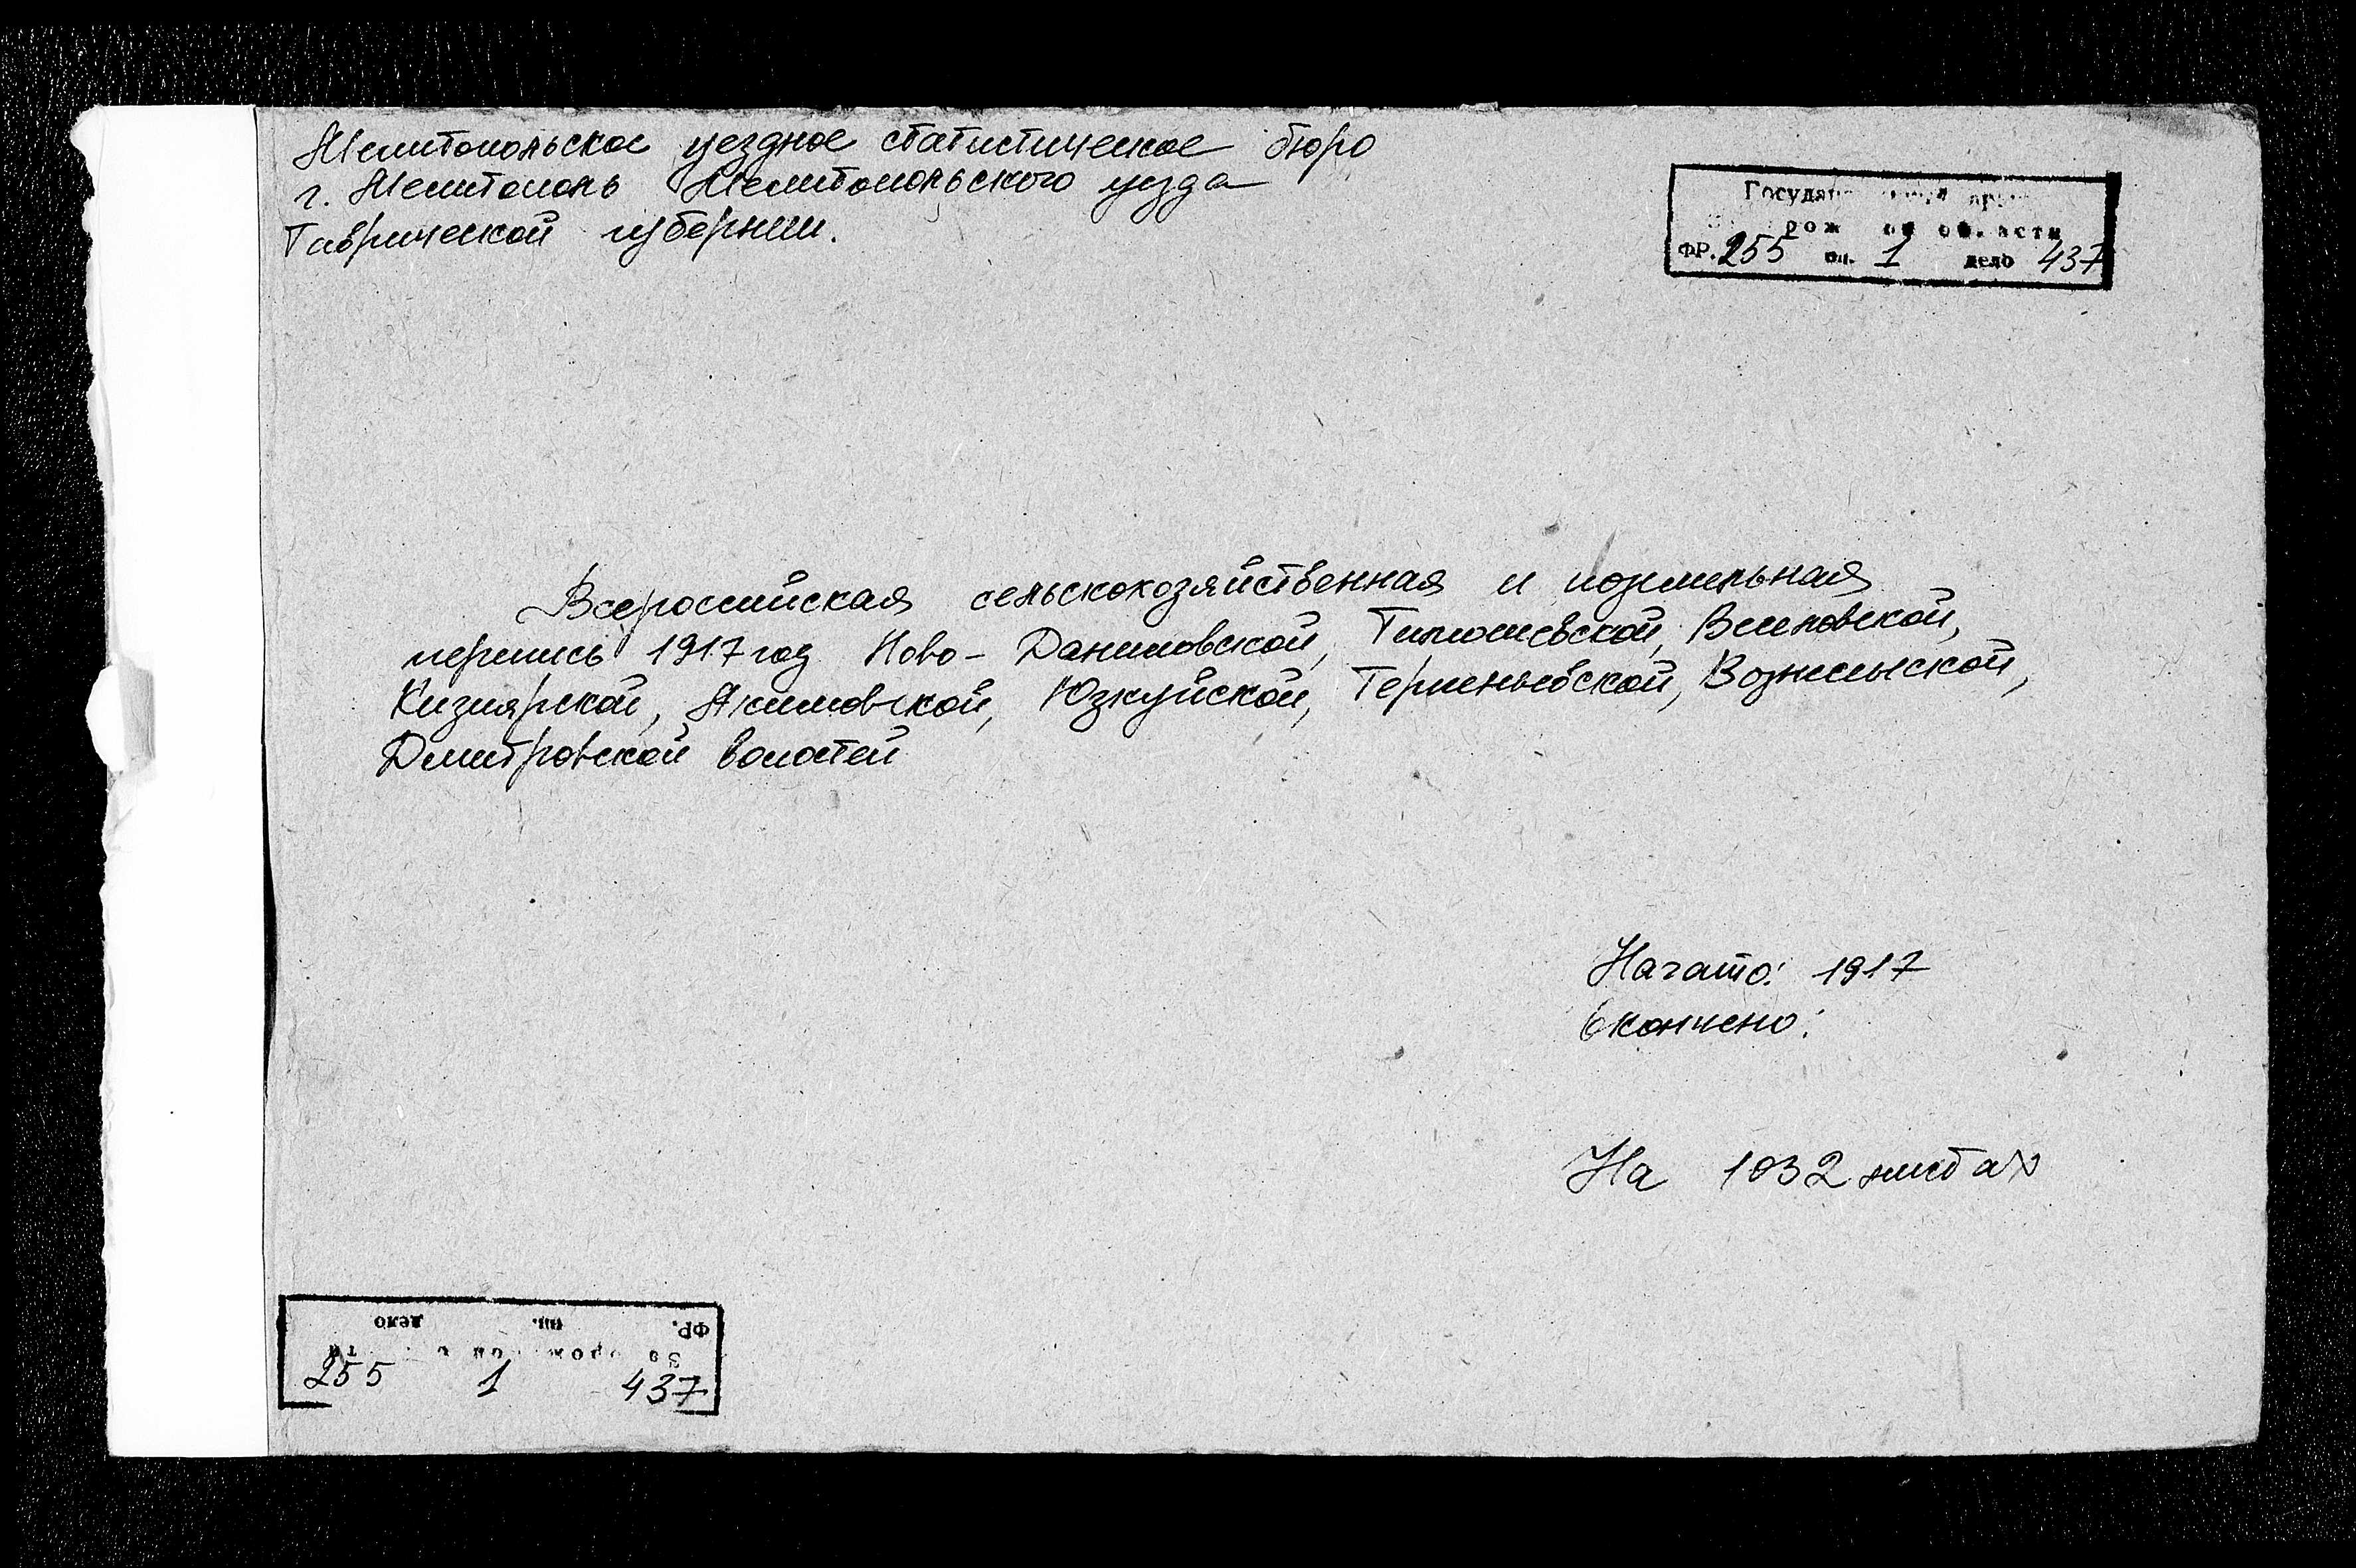 Мелитопольское уездное статистическое бюро
г. Мелитополь Мелитопольского уезда
Таврической губернии.
ФР. 255 оп. 1 дело 437
Всероссийская сельскохозяйственная и поземельная
перепись 1917 год Ново-Даниловской, Тимошевской, Веселовской,
Кизиярской, Акимовской, Юзкуйской, Терпеньевской, Вознесенской,
Дмитровской волостей
Начато: 1917
Окончено:
На 1032 листах
ФР. оп. дело
255 1 437